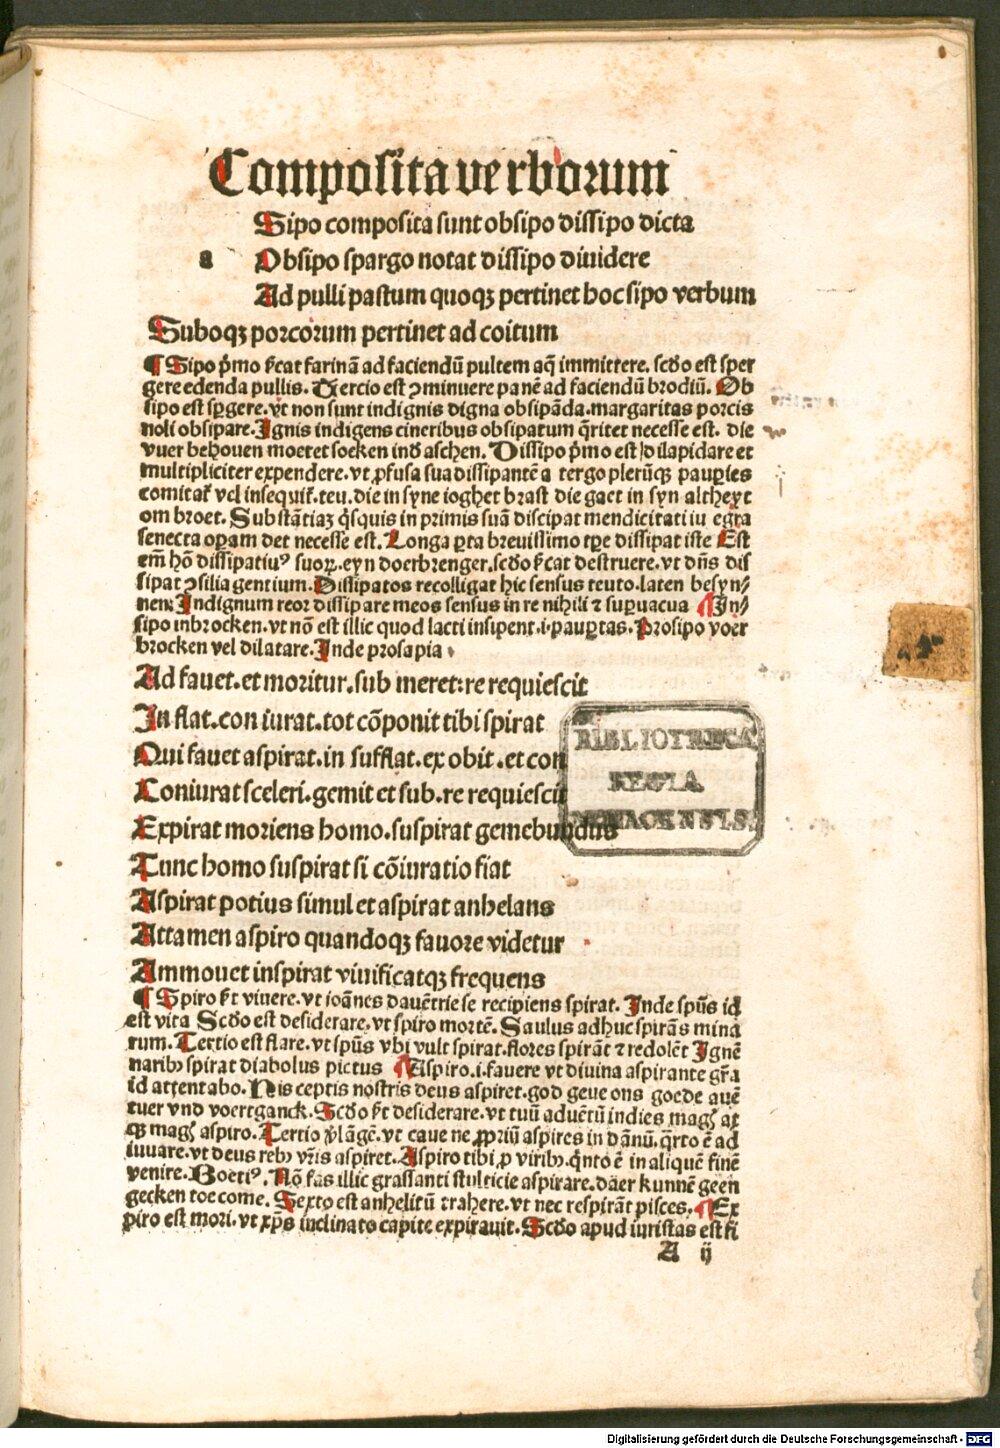 Composita verborum
Sipo composita sunt obsipo dissipo dicta
a Obsipo spargo notat dissipo diuidere
Ad pulli pastum quoqꝫ pertinet hoc sipo verbum
Suboqꝫ porcorum pertinet ad coitum
¶ Sipo p̄mo ſicat farinā ad faciendū pultem aq̄ immittere. scd̄o est sper
gere edenda pullis. Tercio est ꝯminuere panē ad faciendū brodiū. Ob
sipo est sꝑgere. vt non sunt indignis digna obsipāda. margaritas porcis
noli obsipare. Ignis indigens cineribus obsipatum q̄ritet necesse est. die
vuer behouen moeret soeken ind aschen. Dissipo p̄mo est dilapidare et
multipliciter expendere. vt ꝓfusa sua dissipantē a tergo plerūqꝫ pauꝑies
comitat᷑ vel insequit᷑. teu. die in syne ioghet brast die gaet in syn altheyt
om broet. Substātiaꝫ q̇squis in primis suā discipat mendicitati iu egra
senecta oꝑam det necesse est. Longa ꝑta breuissimo tꝑe dissipat iste Est
em̄ hō dissipatiuꝰ suoꝝ. eyn doerbrenger. scd̄o ſicat destruere. vt dn̄s dis
sipat ꝯsilia gentium. Dissipatos recolligat hic sensus teuto. laten besyn⸗
nen. Indignum reor dissipare meos sensus in re nihili ⁊ suꝑuacua ¶ In⸗
sipo inbrocken. vt nō est illic quod lacti insipent. i. pauꝑtas. Prosipo voer
brocken vel dilatare. Inde prosapia.
Ad fauet. et moritur. sub meret: re requiescit
In flat. con iurat. tot cōponit tibi spirat
Qui fauet aspirat. in sufflat. ex obit. et con
Coniurat sceleri. gemit et sub. re requiescit
Expirat moriens homo. suspirat gemebundus
Tunc homo suspirat si cōiuratio fiat
Aspirat potius simul et aspirat anhelans
Attamen aspiro quandoqꝫ fauore videtur
Ammouet inspirat viuificatqꝫ frequens
¶ Spiro ē vt viuere. vt ioānes dauētrie se recipiens spirat. Inde spūs id
est vita Scd̄o est desiderare. vt spiro mortē. Saulus adhuc spirās mina
rum. Tertio est flare. vt spūs vbi vult spirat. flores spirāt ⁊ redolēt Ignē
naribꝫ spirat diabolus pictus ¶ Aspiro. i. fauere vt diuina aspirante gr̄a
id attentabo. Nis ceptis nostris deus aspiret. god geue ons goede auē
tuer vnd voertganck. Scd̄o ē desiderare. vt tuū aduētū indies magꝭ at
qꝫ magꝭ aspiro. Tertio ꝓlāgē. vt caue ne ꝓpriū aspires in dānū. q̄rto ē ad
iuuare. vt deus rebꝫ vr̄is aspiret. Aspiro tibi ꝓ viribꝫ. q̇nto ē in aliquē finē
venire. Boetiꝰ. Nō fas illic grassanti stulticie aspirare. dāer kunnē geen
gecken toe come. Sexto est anhelitū trahere. vt nec respirāt pisces. ¶ Ex
piro est mori. vt xp̄s inclinato capite expirauit. Scd̄o apud iuristas est fi
A ij
BIBLIOTHECA
REGIA
MONACENSIS.
Digitalisierung gefördert durch die Deutsche Forschungsgemeinschaft - DFG